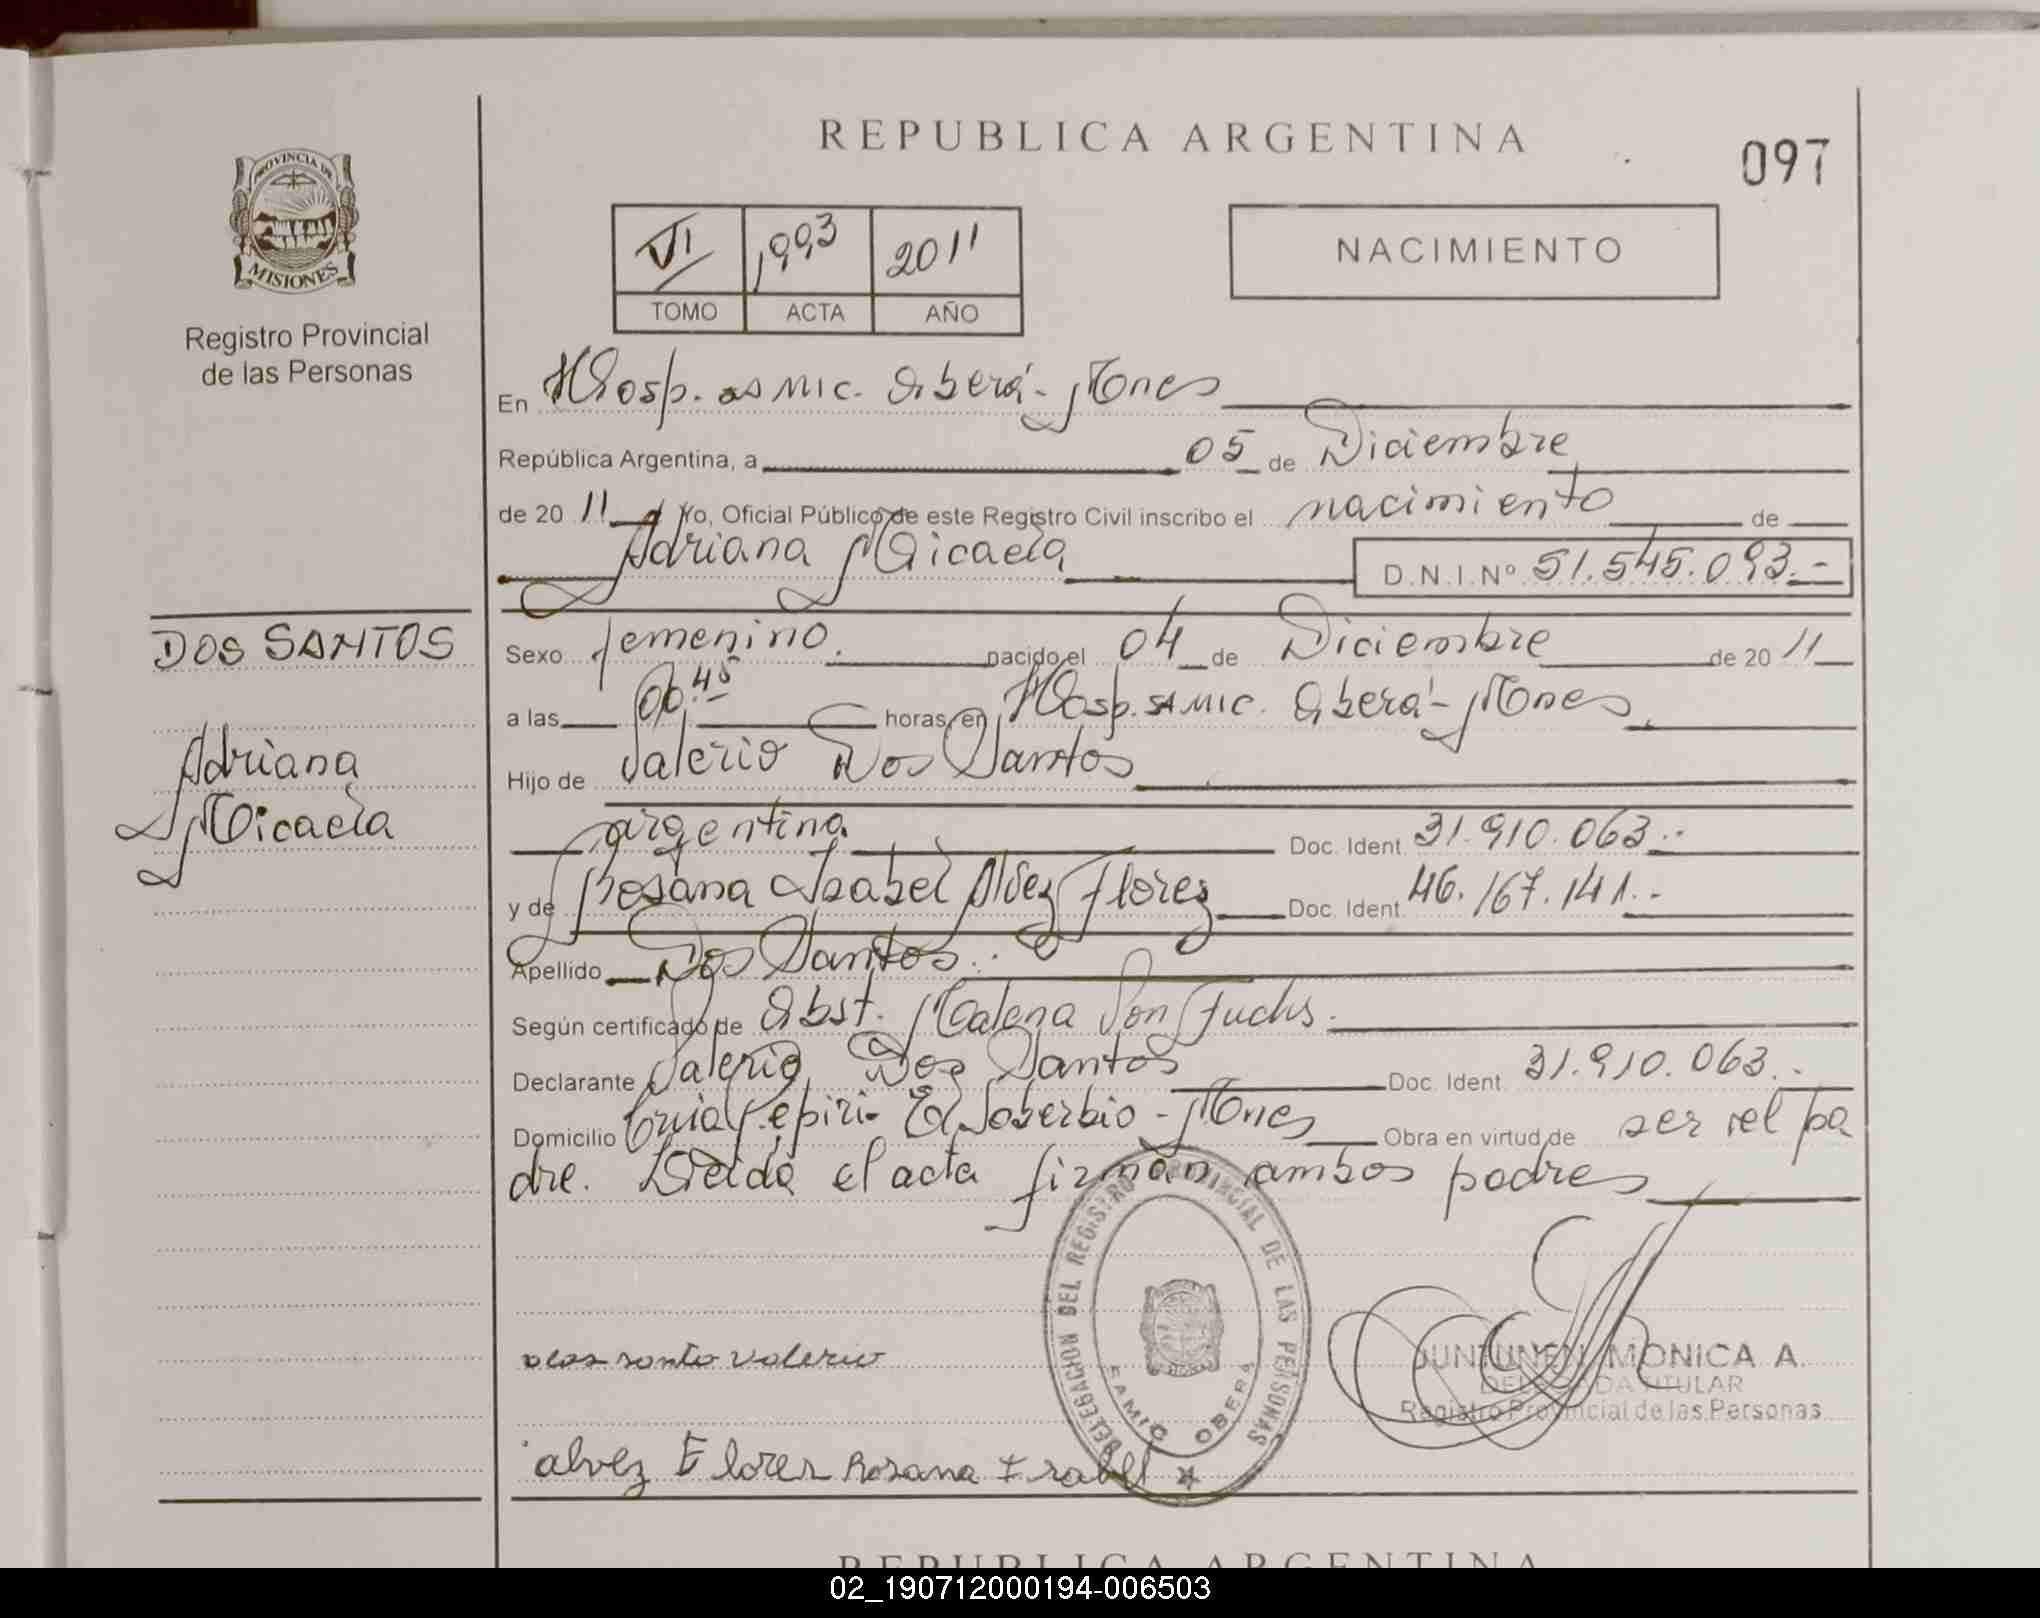 REPUBLICA ARGENTINA
097
PROVINCIA DE
MISIONES
Registro Provincial
de las Personas
VI 1993 2011
TOMO ACTA AÑO
NACIMIENTO
En Hosp. SAMIC. Oberá - Mnes
República Argentina, a 05 de Diciembre
de 2011 Yo, Oficial Público de este Registro Civil inscribo el nacimiento de
Adriana Micaela
D.N.I.Nº 51.545.093.-
DOS SANTOS
Adriana
Micaela
Sexo femenino. nacido el 04 de Diciembre de 2011
a las 00.45 horas, en Hosp. SAMIC. Oberá - Mnes
Hijo de Valerio Dos Santos
argentina. Doc. Ident. 31.910.063.-
y de Rosana Isabel Alvez Florez Doc. Ident. 46.167.141.-
Apellido Dos Santos.-
Según certificado de Obst. Malena Von Fuchs.
Declarante Valerio Dos Santos Doc. Ident. 31.910.063.-
Domicilio Pepiri- El Soberbio - Mnes Obra en virtud de ser el pa
dre. Leída el acta firman ambos padres
DELEGACION DEL REGISTRO PROVINCIAL DE LAS PERSONAS
SAMIC OBERA
dos santo valerio
JUNTUNEN MONICA A.
DELEGADA TITULAR
Registro Provincial de las Personas
alvez Florez Rosana Isabel
REPUBLICA ARGENTINA
02_190712000194-006503